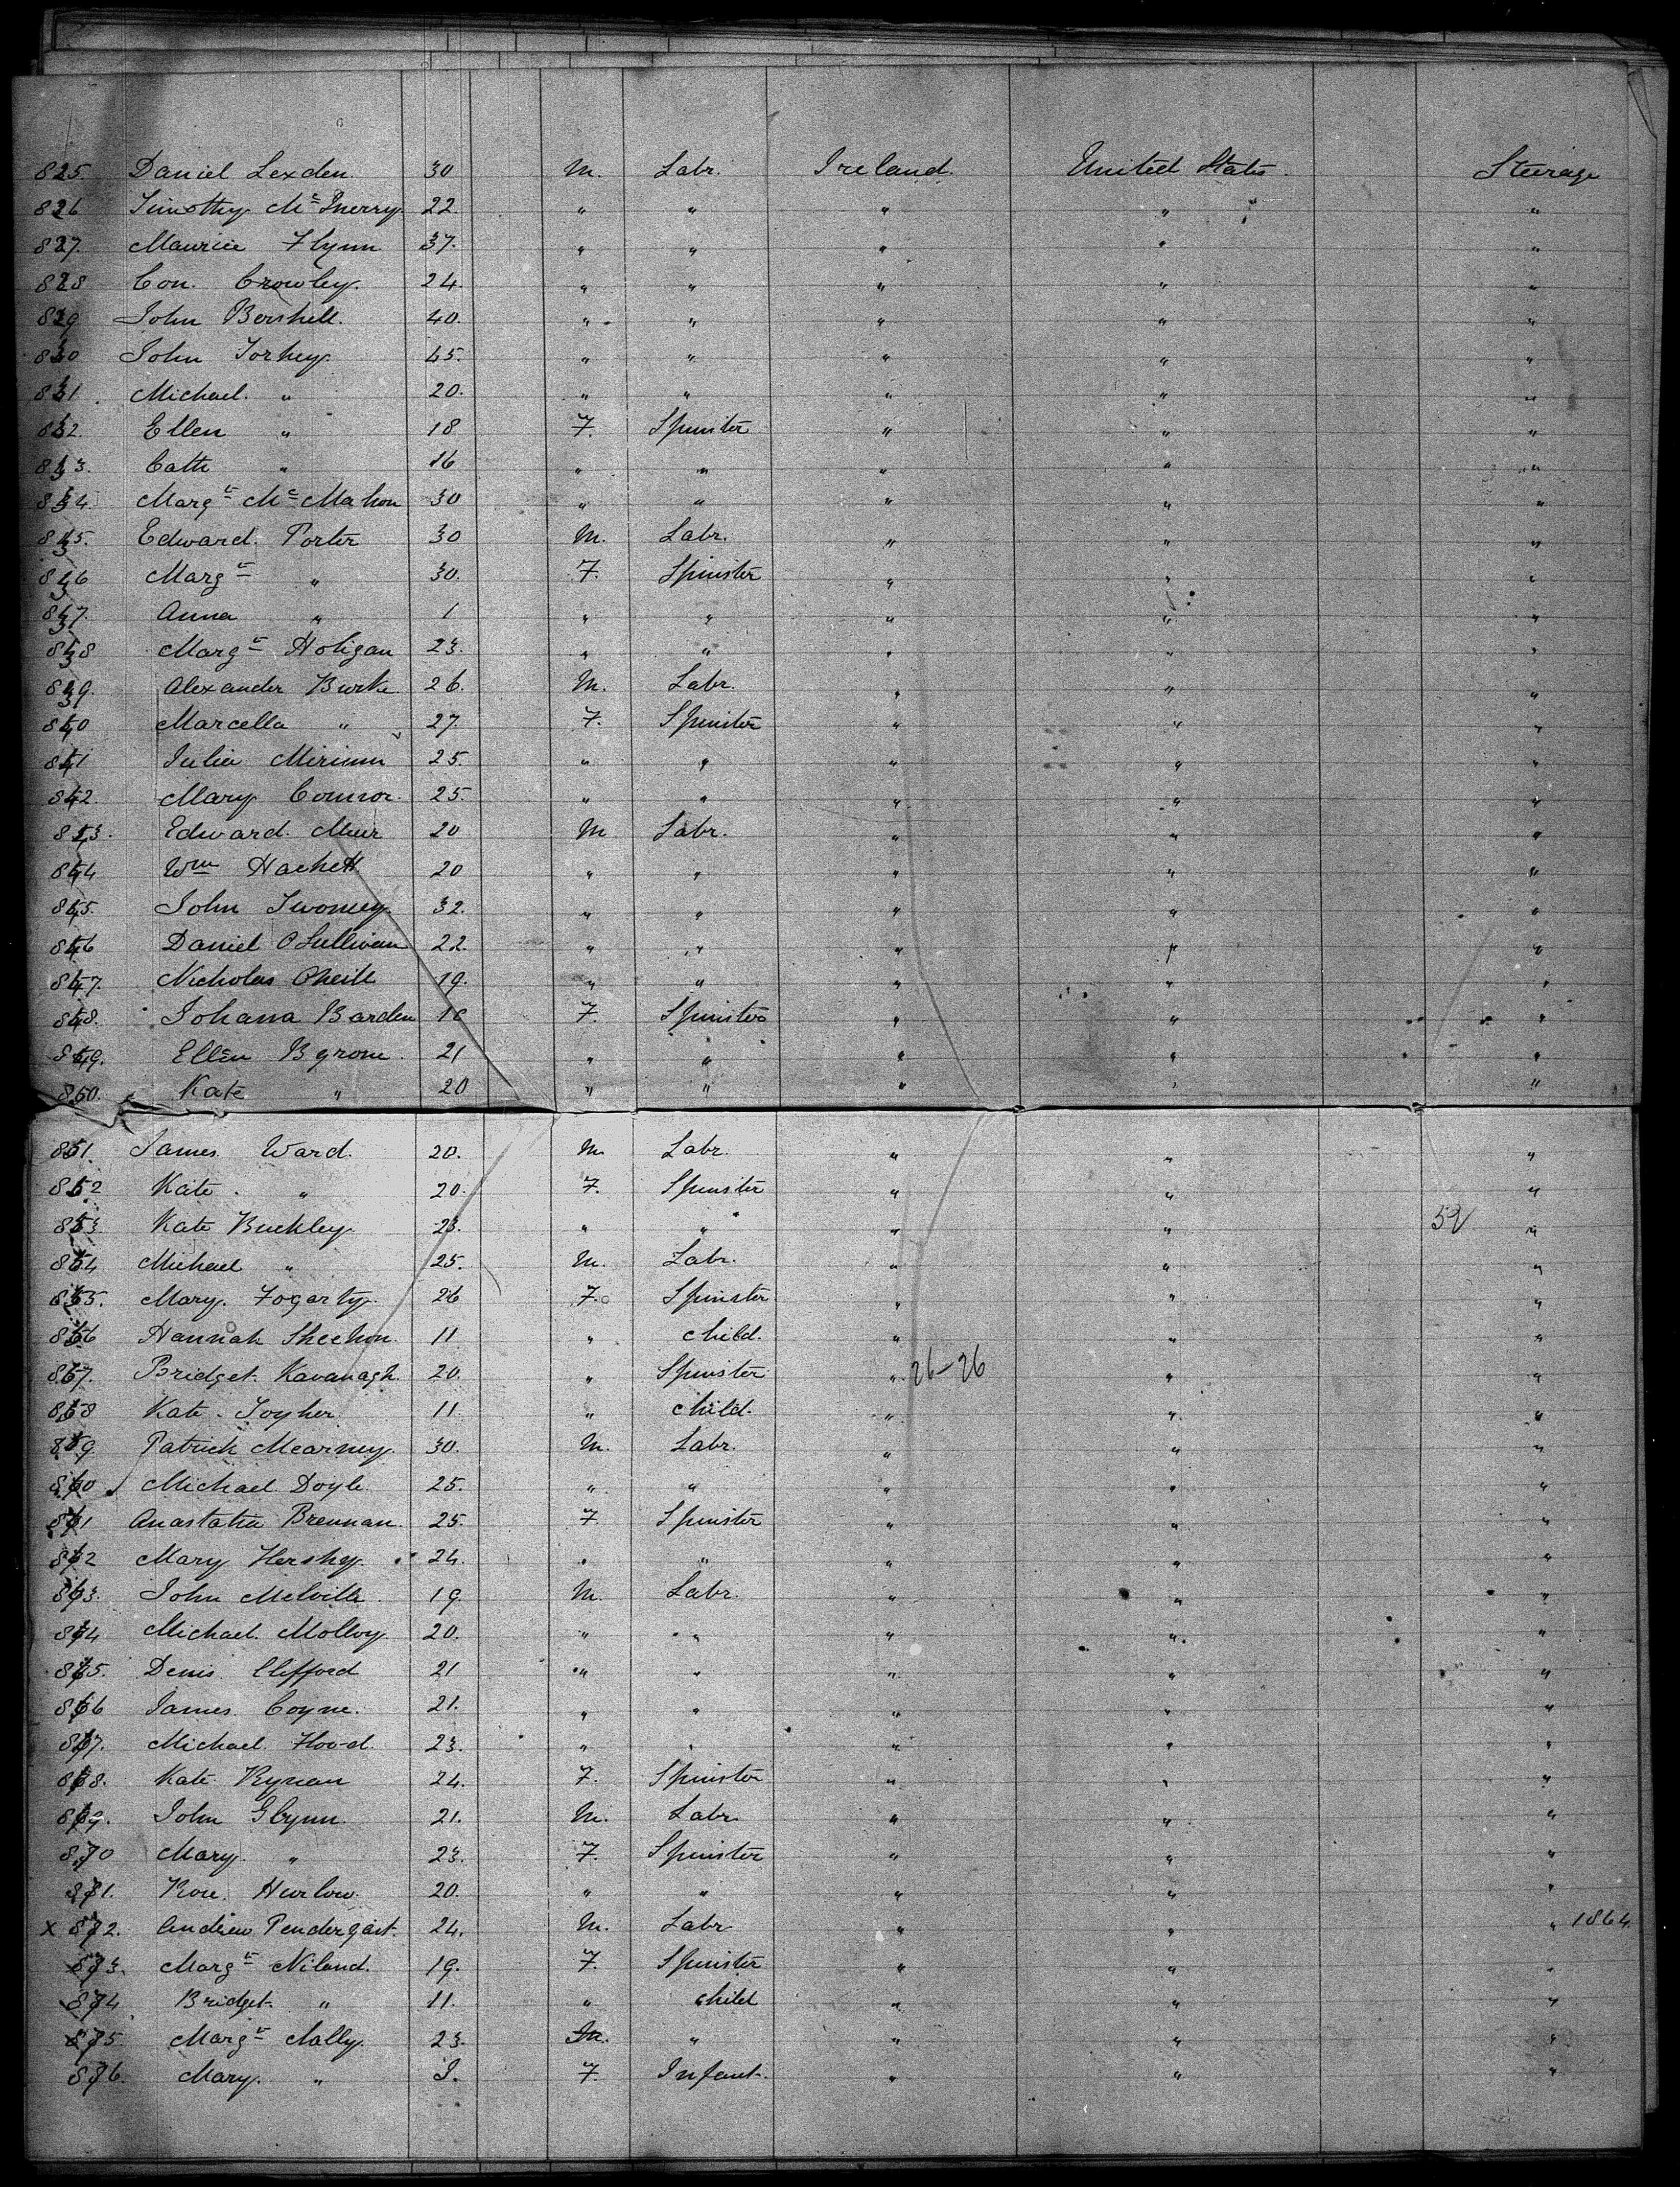 825. Daniel Lexden. 30 M. Labr. Ireland. United States. Steerage
826 Timothy Mc Inerry 22. " " " " "
827. Maurice Flynn 37. " " " " "
828 Con. Crowley. 24. " " " " "
829 John 40. " " " " "
830 John 45. " " " " "
831. Michael. " 20. " " " " "
832. Ellen " 18 F. Spinster " " "
833. Cath " 16 " " " " "
834. Margt Mc Mahon 30 " " " " "
835. Edward. Porter 30 M. Labr. " " "
836 Margt " 30. F. Spinster " " "
837. Anna " 1 " " " " "
838 Margt Holigan 23. " " " " "
839. Alexander Burke 26. M. Labr. " " "
840 Marcella " 27 F. Spinster " " "
841 Julia 25. " " " " "
842. Mary Connor. 25. " " " " "
843. Edward. Muir 20 M Labr. " " "
844 Wm Hackett 20 " " " " "
845. John Twomey. 32. " " " " "
846 Daniel O Sullivan 22. " " " " "
847. Nicholas Oneill 19. " " " " "
848. Johana Barden F. Spinster " " "
849. Ellen Byrone. 21 " " " " "
850. Kate " 20 " " " " "
851. James Ward. 20. M. Labr. " " "
852 Kate. " 20. F. Spinster " " "
853. Kate Buckley. 23. " " " " "
854 Michael " 25. M. Labr. " " "
855. Mary. Fogarty. 26 F. Spinster " " "
856 Hannah Sheehon. 11 " child. " " "
857. Bridget. Kavanagh. 20. " Spinster " 26-26 " "
858 Kate. Togher 11. " child. " " "
859. Patrick Mearney. 30. M. Labr. " " "
860 Michael Doyle 25. " " " " "
861 Anastatia Brennan. 25. F Spinster " " "
862 Mary 24. " " " " "
863. John Melville. 19. M. Labr. " " "
864 Michael. Molloy. 20. " " " " "
865. Denis. Clifford 21 " " " " "
866 James. Coyne. 21. " " " " "
867. Michael. Flood. 23. " " " " "
868. Kate Kynan 24. F. Spinster " " "
869. John Glynn. 21. M. Labr. " " "
870 Mary. " 23. F. Spinster " " "
871. Hurlow. 20. " " " " "
x 872. Andrew Pendergast. 24. M. Labr " " " 1864
873. Margt Niland. 19. F. Spinster " " "
874 Bridget. " 11. " child " " "
875. Margt Nally. 23. M. " " " "
876. Mary. " I. F. Infant. " " "